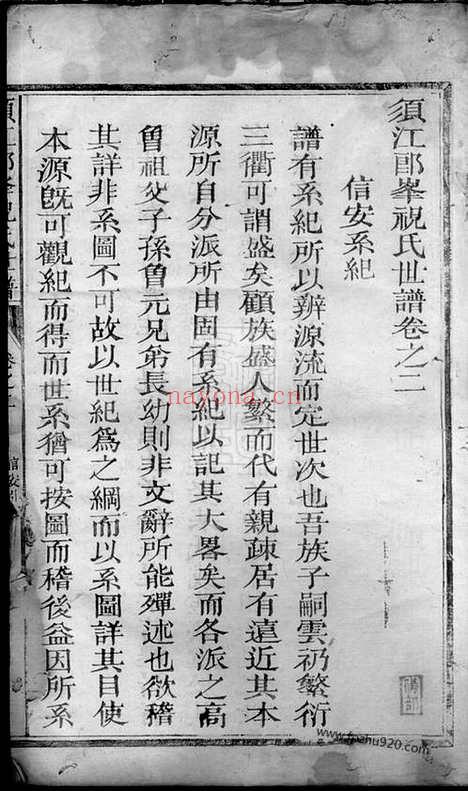 須江郎峯祝氏世譜卷之二
信安系紀
譜有系紀所以辨源流而定世次也吾族子嗣雲礽繁衍
三衢可謂盛矣顧族盛人繁而代有親疎居有遠近其本
源所自分派所由固有系紀以記其大畧矣而各派之高
曾祖父子孫曾元兄弟長幼則非文辭所能殫述也欲稽
其詳非系圖不可故以世紀爲之綱而以系圖詳其目使
本源旣可觀紀而得而世系猶可按圖而稽後益因所系
nayona.cn
www.fmzhu920.com